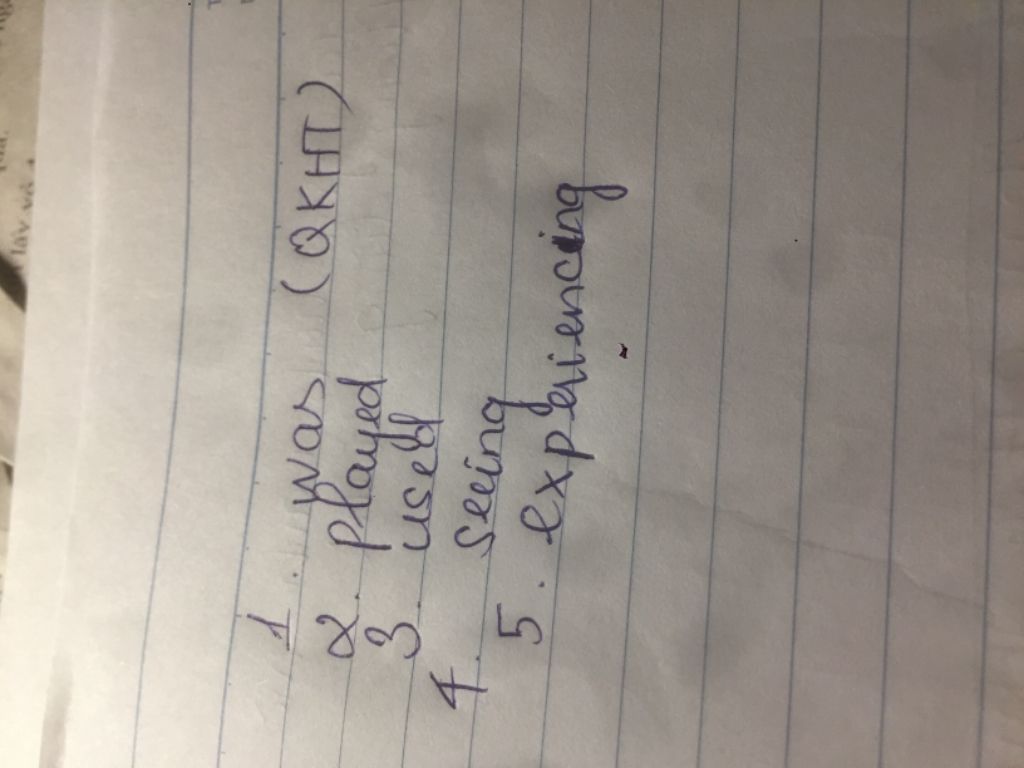 1. was (QKHT)
2. played
3. used
4. seeing
5. experiencing